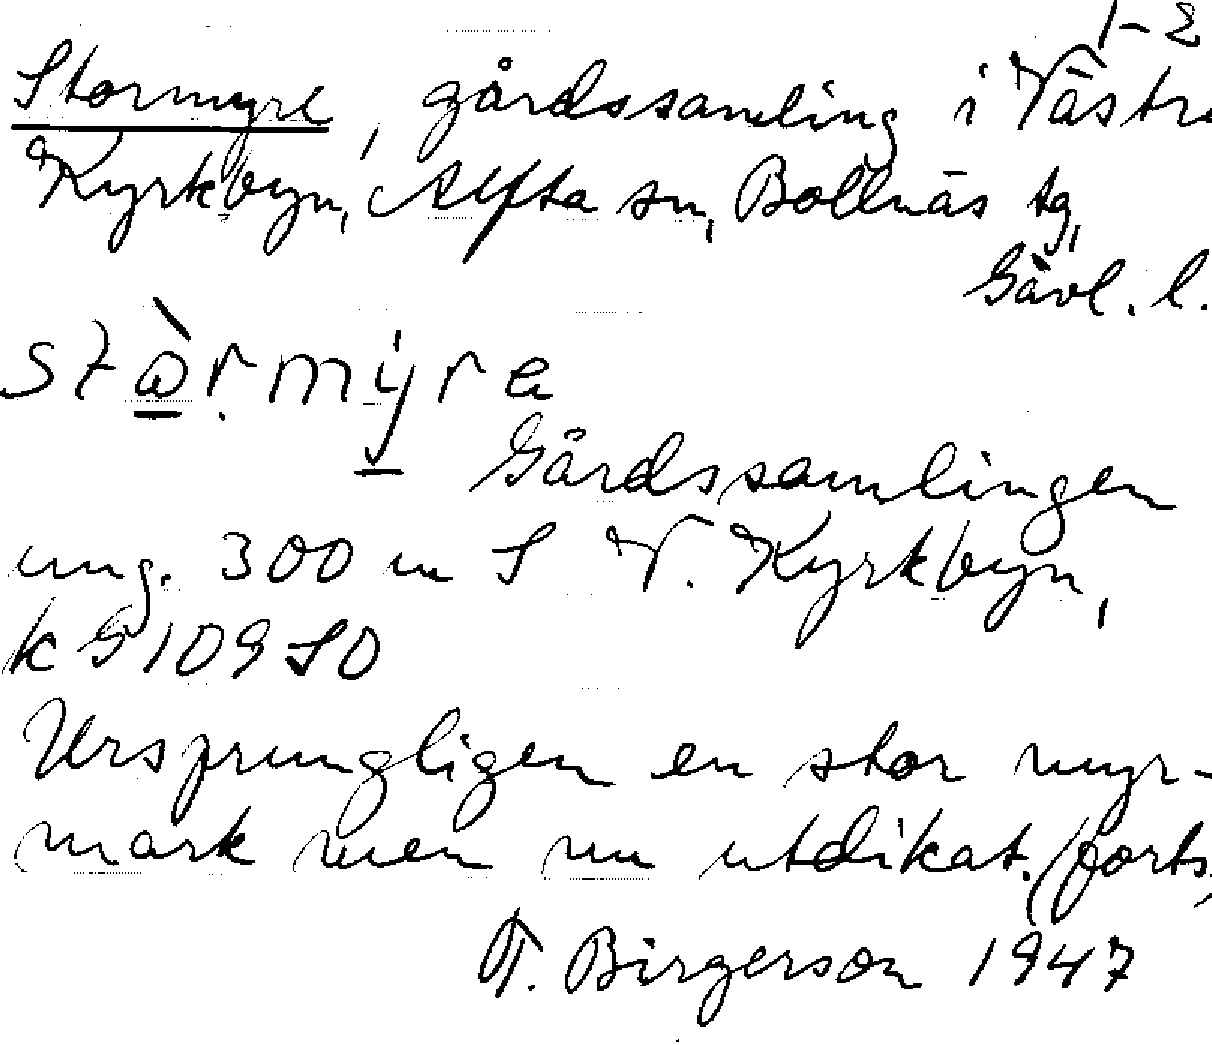 1-2
Stormyre, gårdssamling i Västra
Kyrkbyn, Alfta sn, Bollnäs tg,
Gävl. l.
Gårdssamlingen
ung. 300 m S V. Kyrkbyn,
k S 109 SO
Ursprungligen en stor myr-
mark men nu utdikat. (forts,
T. Birgerson 1947